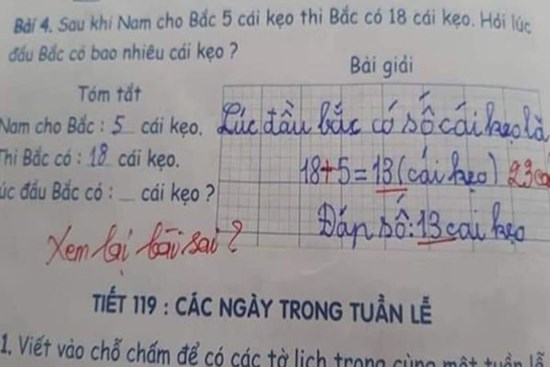 Bài 4. Sau khi Nam cho Bắc 5 cái kẹo thì Bắc có 18 cái kẹo. Hỏi lúc
đầu Bắc có bao nhiêu cái kẹo ?
Tóm tắt
Nam cho Bắc : 5 cái kẹo.
Thì Bắc có : 18 cái kẹo.
úc đầu Bắc có : __ cái kẹo ?
Bài giải
Lúc đầu bắc có số cái kẹo là
18+5=13 (cái kẹo) 23 cá
Đáp số: 13 cái kẹo
Xem lại bài sai ?
TIẾT 119 : CÁC NGÀY TRONG TUẦN LỄ
1. Viết vào chỗ chấm để có các tờ lịch trong cùng một tuần lễ